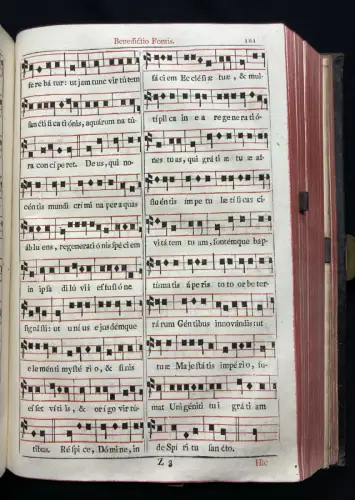 Benedictio Fontis.
fere bá tur: ut jam tunc vir tú tem
san cti fi ca ti ónis, aquárum na tú-
ra con cí pe ret. De us, qui no-
cén tis mundi crí mi na per a quas
áb lu ens, regenerati ó nis spé ci em
in ipsa di lú vii ef fu si ó ne
signásti: ut u ní us e jus dém que
e le mén ti mysté ri o, & fi nis
es set ví ti is, & o rí go vir tú-
tibus. Ré spi ce, Dó mi ne, in
fá ci em Ec clé si æ tu æ, & mul-
típli ca in e a re ge ne ra ti ó-
nes tu as, qui grá ti æ tu æ af-
flu én tis ím pe tu læ tí fi cas ci-
vi tá tem tu am, fontémque bap-
tísma tis á pe ris to to or be ter-
rá rum Gén ti bus innovándis: ut
tuæ Ma je stá tis im pé ri o, su-
mat Uni géni ti tu i grá ti am
de Spí ri tu san cto.
Z 3
Hic